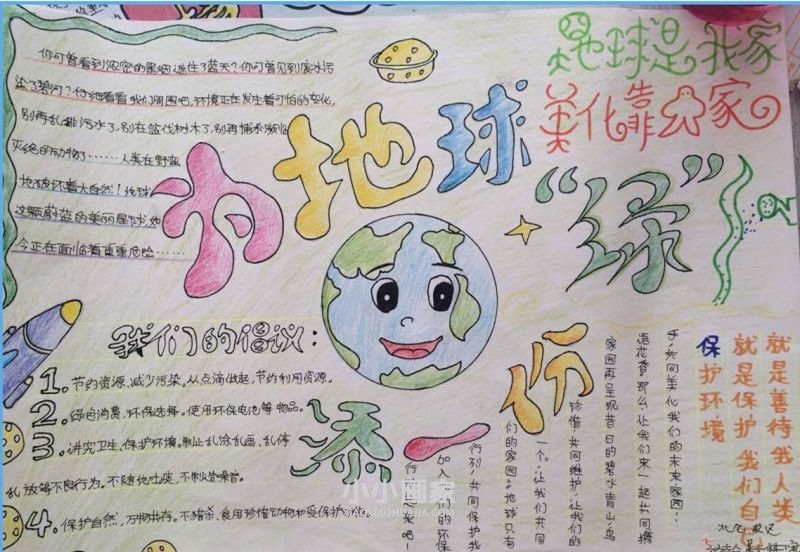 你可曾看到浓密的黑烟遮住了蓝天?你可曾见到废水污
染了碧河?仔细看看我们周围吧,环境正在发生着可怕的变化,
别再乱排污水了,别在盗伐树木了,别再捕杀濒临
灭绝的动物了……人类在野蛮
地破坏着大自然!地球
这颗蔚蓝的美丽星球,她
今正在面临着重重危险……
地球是我家
美化靠大家
为地球
“绿”
添一份
我们的倡议:
1.节约资源、减少污染。从点滴做起,节约利用资源。
2.绿色消费,环保选择。使用环保电池等物品。
3.讲究卫生、保护环境。制止乱涂乱画、乱停
乱放等不良行为。不随地吐痰,不制造噪音。
4.保护自然,万物共存。不猎杀、食用珍惜动物和受保护动物。
就是善待我人类
就是保护我们自
保护环境
手,共同美化我们的未来家园!
语花香,那么,让我们来一起共同携
家园再呈现昔日的碧水青山,鸟
珍惜,共同维护,让我们的
一个。让我们共同
们的家园。地球只有
行列,共同保护我
加入我们的环保
行
来吧!
小小画家
XIAOXIAOHUAJIA.COM